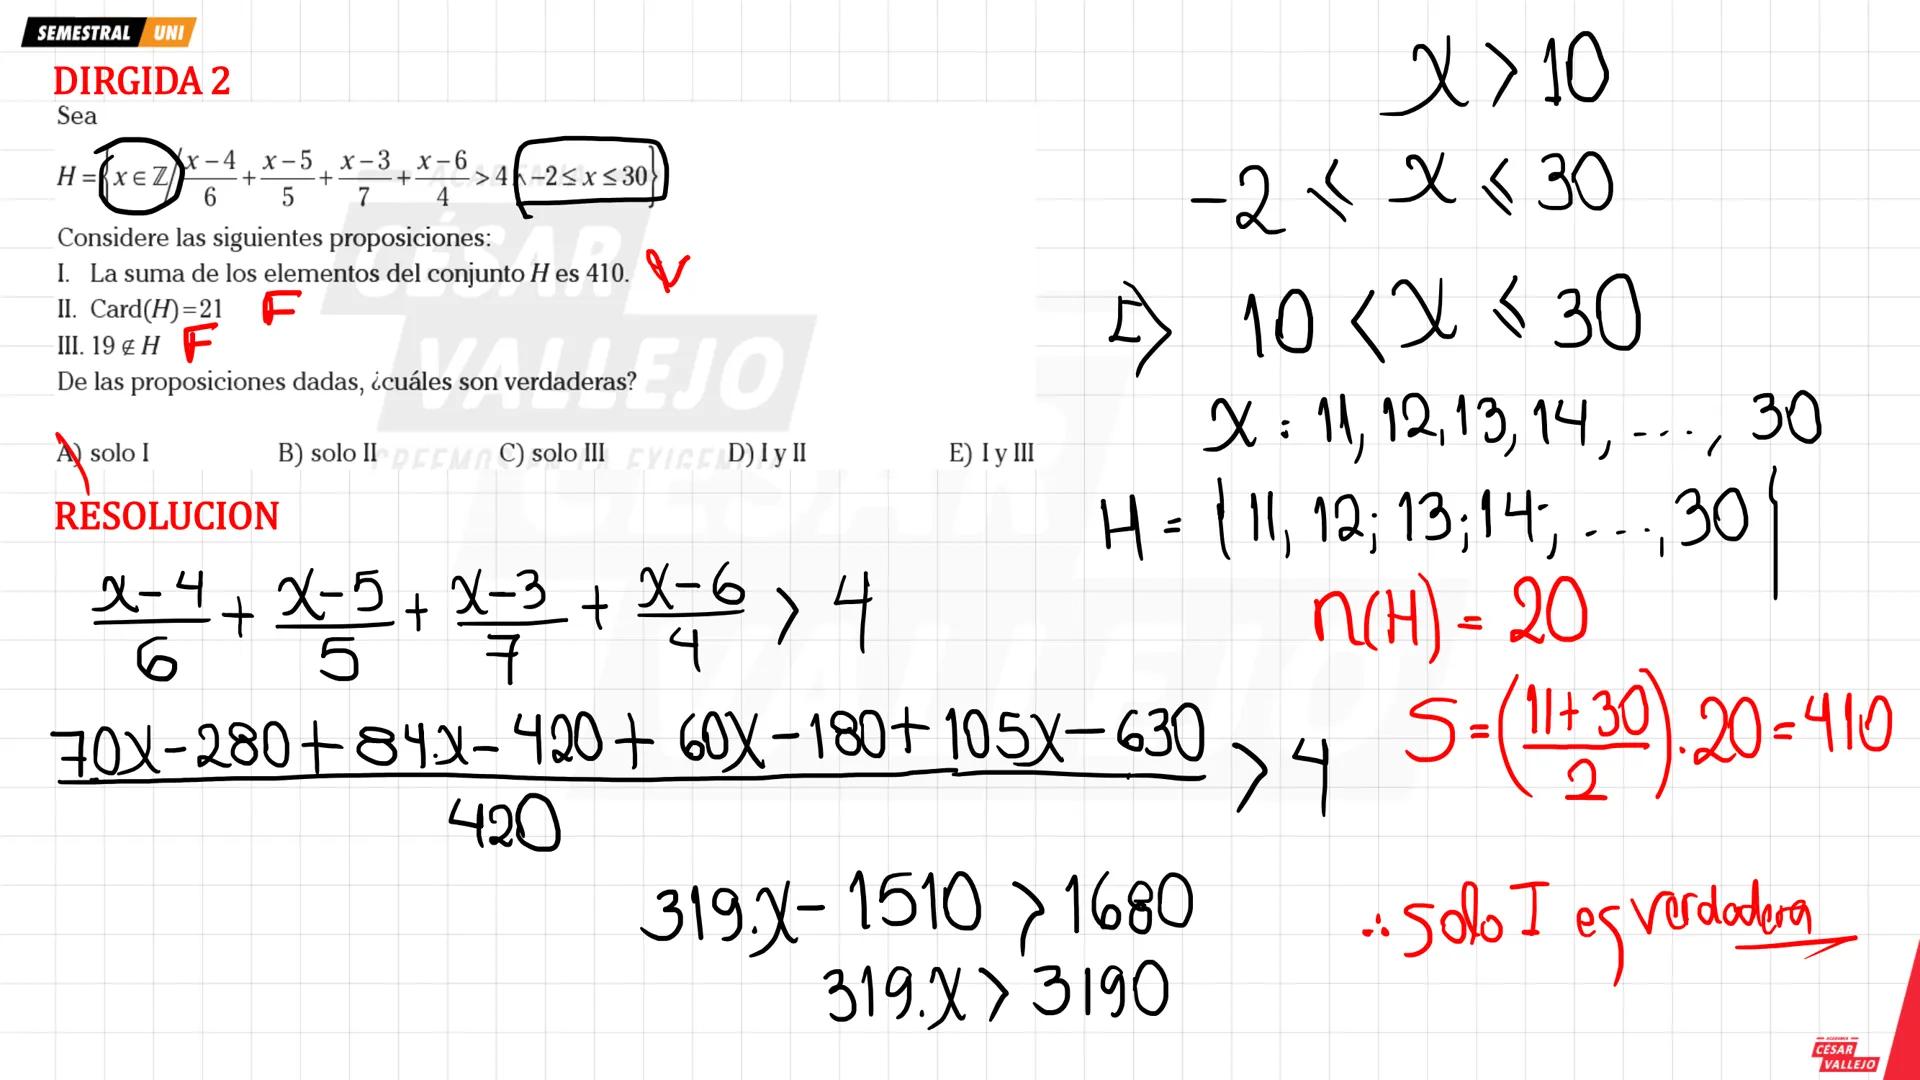 SEMESTRAL UNI
DIRGIDA 2
Sea
H = {x ∈ ℤ / (x−4)/6 + (x−5)/5 + (x−3)/7 + (x−6)/4 > 4 ∧ −2 ≤ x ≤ 30}
Considere las siguientes proposiciones:
I. La suma de los elementos del conjunto H es 410. V
II. Card(H)=21 F
III. 19 ∉ H F
De las proposiciones dadas, ¿cuáles son verdaderas?
A) solo I B) solo II C) solo III D) I y II E) I y III
RESOLUCION
(x−4)/6 + (x−5)/5 + (x−3)/7 + (x−6)/4 > 4
(70x − 280 + 84.x − 420 + 60x − 180 + 105x − 630)/420 > 4
319.x − 1510 > 1680
319.x > 3190
x > 10
−2 ≤ x ≤ 30
⇒ 10 < x ≤ 30
x : 11, 12, 13, 14, ..., 30
H = {11, 12; 13; 14; ..., 30}
n(H) = 20
S = ((11+30)/2).20 = 410
∴ solo I es verdadera
ACADEMIA
CÉSAR
VALLEJO
CREEMOS EN LA EXIGENCIA
CÉSAR
VALLEJO
ACADEMIA
CÉSAR
VALLEJO